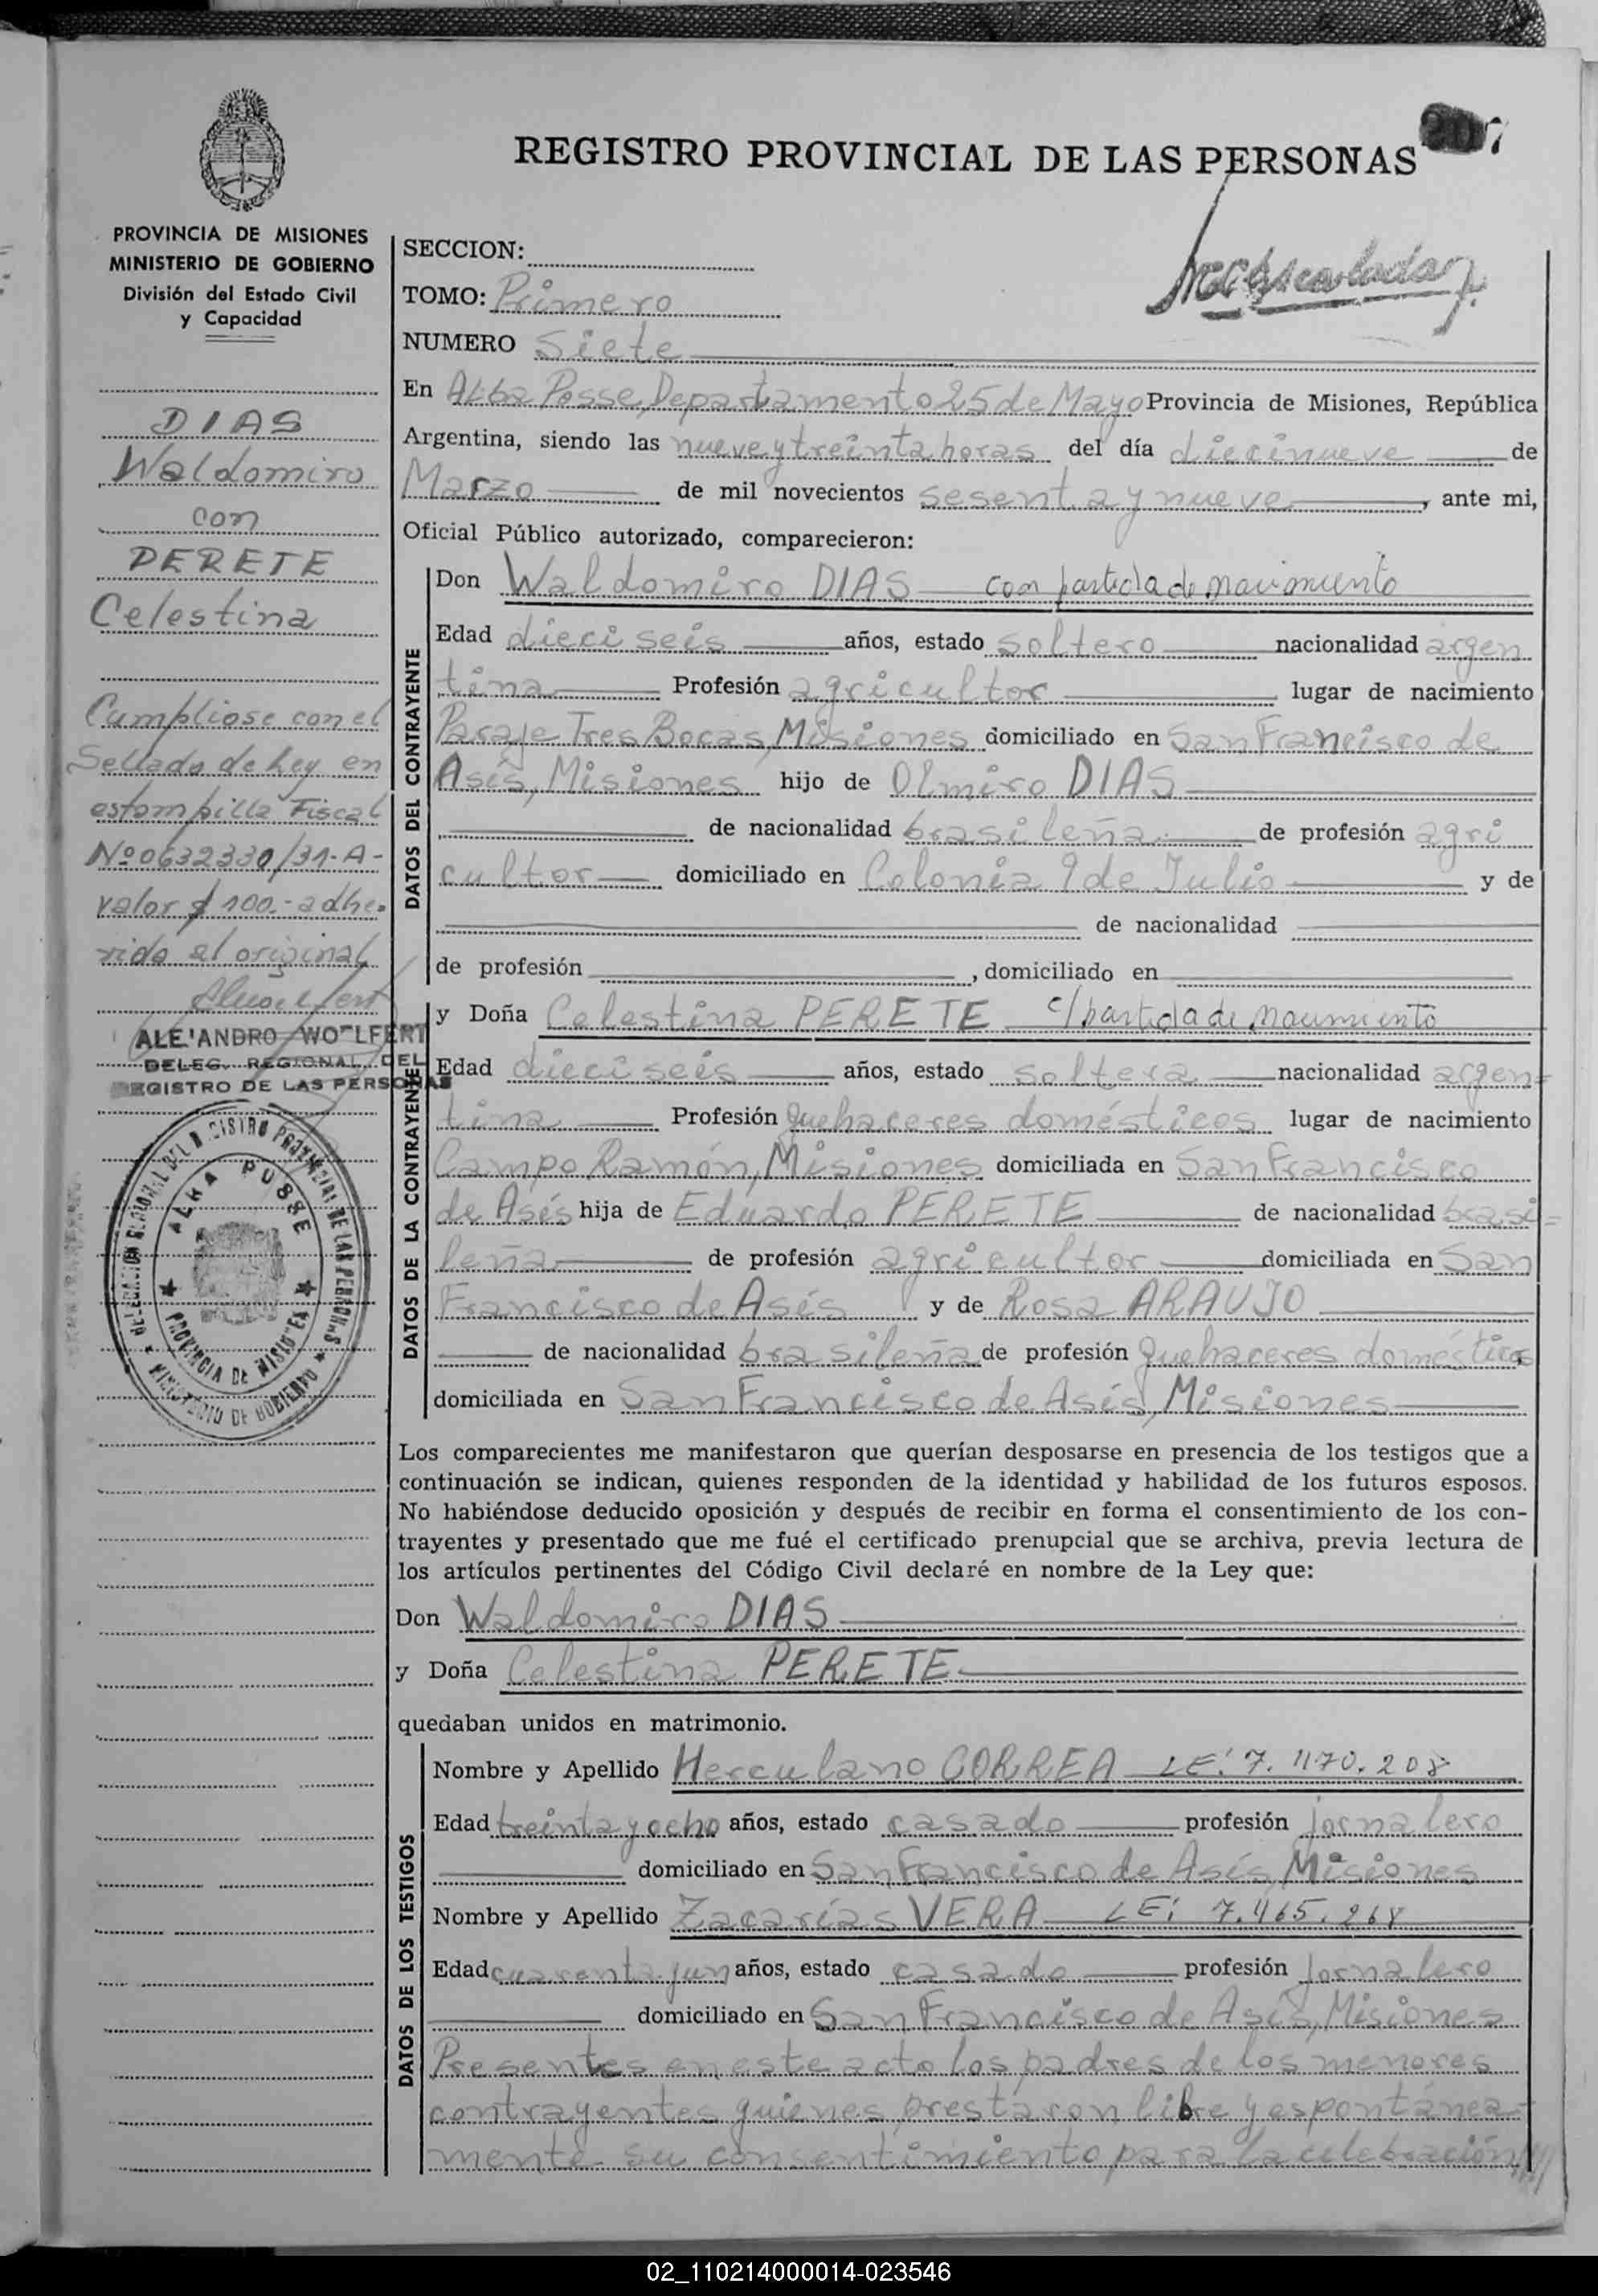 207
REGISTRO PROVINCIAL DE LAS PERSONAS
PROVINCIA DE MISIONES
MINISTERIO DE GOBIERNO
División del Estado Civil
y Capacidad
DIAS
Waldomiro
con
PERETE
Celestina
Cumpliose con el
Sellado de Ley en
estampilla Fiscal
Nº 0632330/31-A-
valor $ 100.- adhe-
rido al original
ALEJANDRO WOLFERT
DELEG. REGIONAL DEL
REGISTRO DE LAS PERSONAS
DELEGACION REGIONAL DEL REGISTRO PROVINCIAL DE LAS PERSONAS
ALBA POSSE
PROVINCIA DE MISIONES
MINISTERIO DE GOBIERNO
SECCION:
TOMO: Primero
NUMERO Siete
En Alba Posse, Departamento 25 de Mayo Provincia de Misiones, República
Argentina, siendo las nueve y treinta horas del día diecinueve de
Marzo de mil novecientos sesenta y nueve, ante mi,
Oficial Público autorizado, comparecieron:
DATOS DEL CONTRAYENTE
Don Waldomiro DIAS con partida de nacimiento
Edad dieciseis años, estado soltero nacionalidad argen
tina Profesión agricultor lugar de nacimiento
Paraje Tres Bocas, Misiones domiciliado en San Francisco de
Asís, Misiones hijo de Olmiro DIAS
de nacionalidad brasileña de profesión agri
cultor domiciliado en Colonia 9 de Julio y de
de nacionalidad
de profesión , domiciliado en
DATOS DE LA CONTRAYENTE
y Doña Celestina PERETE c/partida de nacimiento
Edad dieciseis años, estado soltera nacionalidad argen=
tina Profesión quehaceres domésticos lugar de nacimiento
Campo Ramón, Misiones domiciliada en San Francisco
de Asís hija de Eduardo PERETE de nacionalidad brasi=
leña de profesión agricultor domiciliada en San
Francisco de Asís y de Rosa ARAUJO
de nacionalidad brasileña de profesión quehaceres domésticos
domiciliada en San Francisco de Asís, Misiones
Los comparecientes me manifestaron que querían desposarse en presencia de los testigos que a
continuación se indican, quienes responden de la identidad y habilidad de los futuros esposos.
No habiéndose deducido oposición y después de recibir en forma el consentimiento de los con-
trayentes y presentado que me fué el certificado prenupcial que se archiva, previa lectura de
los artículos pertinentes del Código Civil declaré en nombre de la Ley que:
Don Waldomiro DIAS
y Doña Celestina PERETE
quedaban unidos en matrimonio.
DATOS DE LOS TESTIGOS
Nombre y Apellido Herculano CORREA LE:
Edad treinta y ocho años, estado casado profesión jornalero
domiciliado en San Francisco de Asís, Misiones
Nombre y Apellido Zacarías VERA LE: 7.465.268
Edad cuarenta y un años, estado casado profesión jornalero
domiciliado en San Francisco de Asís, Misiones
Presentes en este acto los padres de los menores
contrayentes quienes prestaron libre y espontánea-
mente su consentimiento para la celebración
02_110214000014-023546